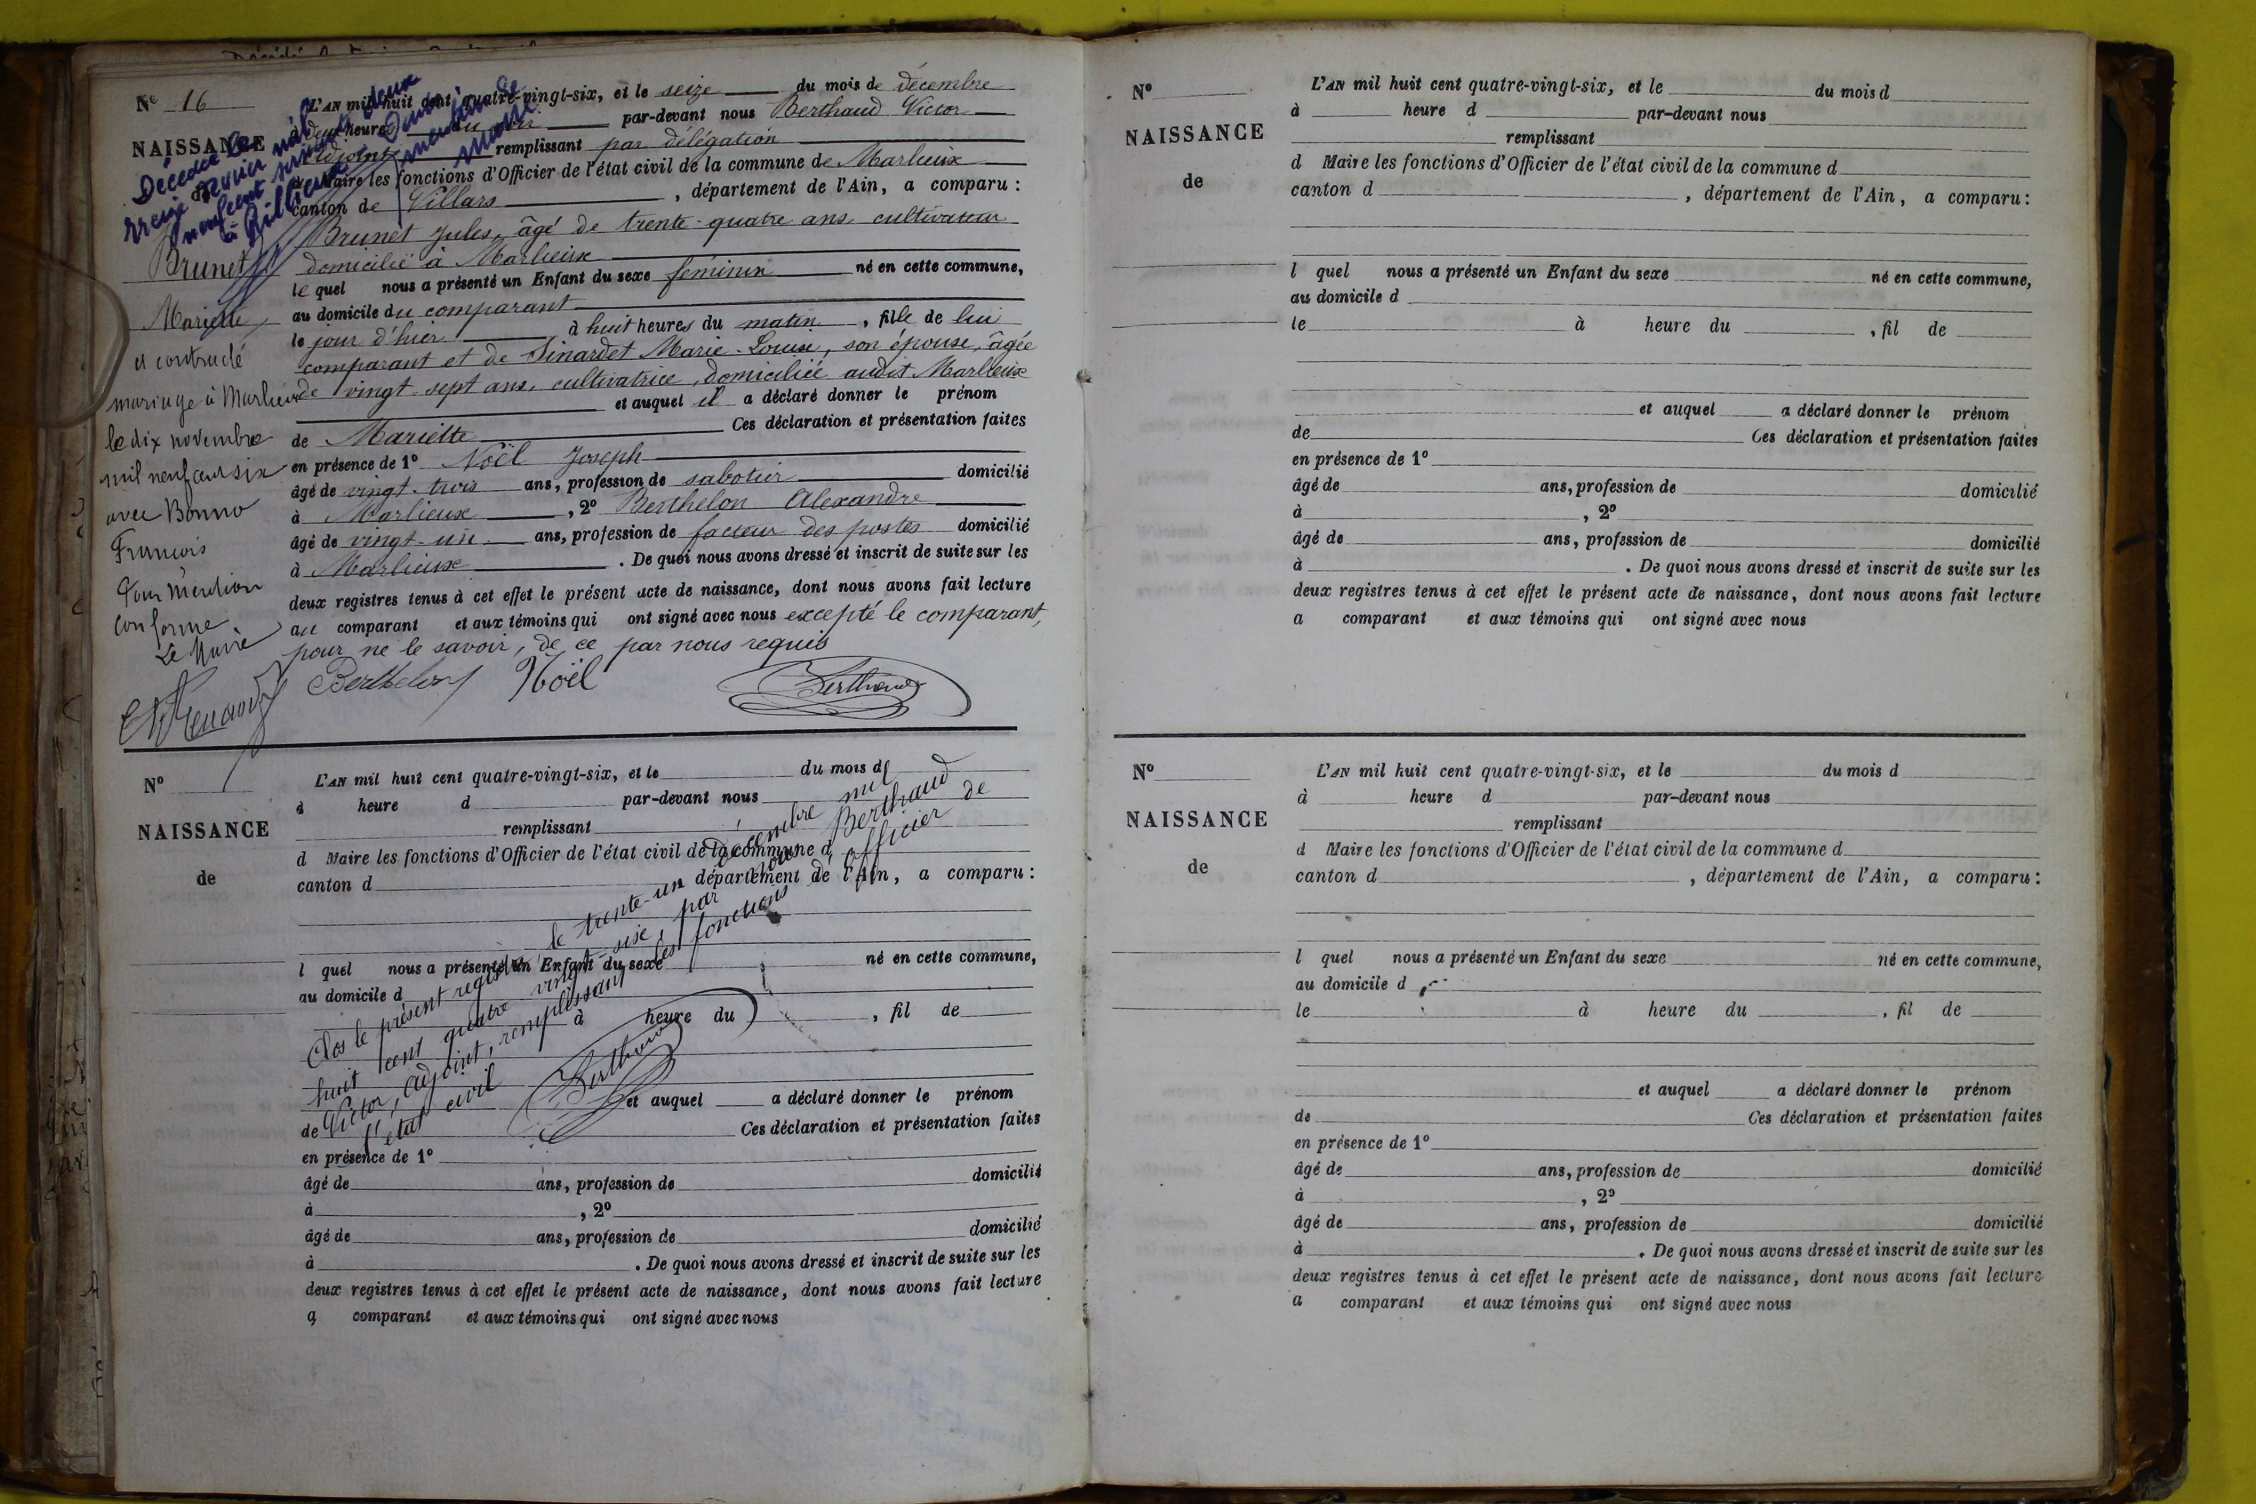 Nº 16
NAISSANCE
de
Brunet
Mariette
a contracté
mariage à Marlieux
le dix novembre
mil neuf cent six
avec Bonno
François
Pour mention
conforme
Le Maire
Décédée
neuf cent
à Rillieux
L'AN mil huit cent quatre-vingt-six, et le seize du mois de décembre
à deux heures du soir par-devant nous Berthaud Victor
adjoint remplissant par délégation
d Maire les fonctions d'Officier de l'état civil de la commune de Marlieux
canton de Villars , département de l'Ain, a comparu :
Brunet Jules, âgé de trente-quatre ans cultivateur
domicilié à Marlieux
le quel nous a présenté un Enfant du sexe féminin né en cette commune,
au domicile du comparant
le jour d'hier à huit heures du matin , fille de lui
comparant et de Sinardet Marie-Louise, son épouse, âgée
de vingt-sept ans, cultivatrice, domiciliée audit Marlieux
et auquel il a déclaré donner le prénom
de Mariette Ces déclaration et présentation faites
en présence de 1º Noël Joseph
âgé de vingt-trois ans, profession de sabotier domicilié
à Marlieux , 2º Berthelon Alexandre
âgé de vingt-un ans, profession de facteur des postes domicilié
à Marlieux . De quoi nous avons dressé et inscrit de suite sur les
deux registres tenus à cet effet le présent acte de naissance, dont nous avons fait lecture
au comparant et aux témoins qui ont signé avec nous excepté le comparant,
pour ne le savoir, de ce par nous requis
Berthelon Noël Berthaud
Nº
NAISSANCE
de
L'AN mil huit cent quatre-vingt-six, et le du mois d
à heure d par-devant nous
remplissant
d Maire les fonctions d'Officier de l'état civil de la commune d
canton d département de l'Ain, a comparu :
l quel nous a présenté un Enfant du sexe né en cette commune,
au domicile d
à heure du , fil de
et auquel a déclaré donner le prénom
de Ces déclaration et présentation faites
en présence de 1º
âgé de ans, profession de domicilié
à , 2º
âgé de ans, profession de domicilié
à . De quoi nous avons dressé et inscrit de suite sur les
deux registres tenus à cet effet le présent acte de naissance, dont nous avons fait lecture
a comparant et aux témoins qui ont signé avec nous
Clos le présent registre, le trente-un décembre mil
huit cent quatre vingt-six, par nous Berthaud
Victor, adjoint, remplissant les fonctions d'officier de
l'état civil
Berthaud
Nº
NAISSANCE
de
L'AN mil huit cent quatre-vingt-six, et le du mois d
à heure d par-devant nous
remplissant
d Maire les fonctions d'Officier de l'état civil de la commune d
canton d , département de l'Ain, a comparu :
l quel nous a présenté un Enfant du sexe né en cette commune,
au domicile d
le à heure du , fil de
et auquel a déclaré donner le prénom
de Ces déclaration et présentation faites
en présence de 1º
âgé de ans, profession de domicilié
à , 2º
âgé de ans, profession de domicilié
à . De quoi nous avons dressé et inscrit de suite sur les
deux registres tenus à cet effet le présent acte de naissance, dont nous avons fait lecture
a comparant et aux témoins qui ont signé avec nous
Nº
NAISSANCE
de
L'AN mil huit cent quatre-vingt-six, et le du mois d
à heure d par-devant nous
remplissant
d Maire les fonctions d'Officier de l'état civil de la commune d
canton d , département de l'Ain, a comparu :
l quel nous a présenté un Enfant du sexe né en cette commune,
au domicile d
le à heure du , fil de
et auquel a déclaré donner le prénom
de Ces déclaration et présentation faites
en présence de 1º
âgé de ans, profession de domicilié
à , 2º
âgé de ans, profession de domicilié
à . De quoi nous avons dressé et inscrit de suite sur les
deux registres tenus à cet effet le présent acte de naissance, dont nous avons fait lecture
a comparant et aux témoins qui ont signé avec nous